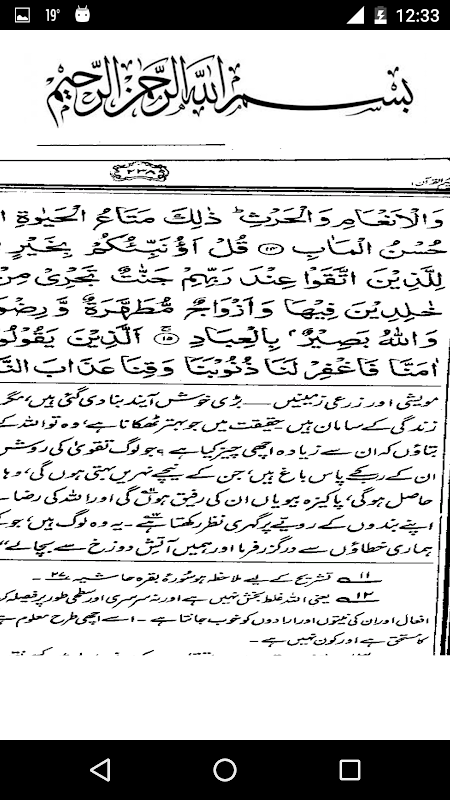 19° 12:33
بسم الله الرحمن الرحيم
۲۳۸
وَالْاَنْعَامِ وَالْحَرْثِ ؕ ذٰلِكَ مَتَاعُ الْحَيٰوةِ
حُسْنُ الْمَاٰبِ ۝۱۴ قُلْ اَؤُنَبِّئُكُمْ بِخَيْرٍ
لِلَّذِيْنَ اتَّقَوْا عِنْدَ رَبِّهِمْ جَنّٰتٌ تَجْرِيْ مِنْ
خٰلِدِيْنَ فِيْهَا وَاَزْوَاجٌ مُّطَهَّرَةٌ وَّ
وَاللّٰهُ بَصِيْرٌۢ بِالْعِبَادِ ۝۱۵ اَلَّذِيْنَ
اٰمَنَّا فَاغْفِرْ لَنَا ذُنُوْبَنَا وَقِنَا عَذَابَ
مویشی اور زرعی زمینیں — بڑی خوش آیند بنا دی گئی ہیں، مگر
زندگی کے سامان ہیں۔ حقیقت میں جو بہتر ٹھکانا ہے، وہ تو اللہ کے
بتاؤں کہ ان سے زیادہ اچھی چیز کیا ہے؟ جو لوگ تقویٰ کی روش
ان کے رب کے پاس باغ ہیں، جن کے نیچے نہریں بہتی ہوں گی، وہا
حاصل ہوگی، پاکیزہ بیویاں ان کی رفیق ہوں گی اور اللہ کی رضا
اپنے بندوں کے رویّے پر گہری نظر رکھتا ہے۔ یہ وہ لوگ ہیں، جو
ہماری خطاؤں سے درگزر فرما اور ہمیں آتشِ دوزخ سے بچا لے"
۱۱ تشریح کے لیے ملاحظہ ہو سورۂ بقرہ حاشیہ ۲۷۔
۱۲ یعنی اللہ غلط بخش نہیں ہے اور نہ سرسری اور سطحی طور پر فیصلہ
افعال اور ان کی نیتوں اور ارادوں کو خوب جانتا ہے۔ اسے اچھی طرح معلوم ہے
کا مستحق ہے اور کون نہیں ہے۔